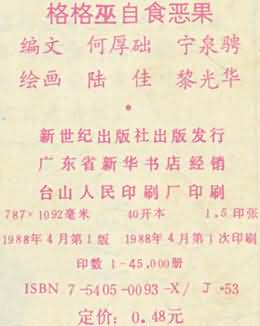 格格巫自食恶果
编文 何厚础 宁泉骋
绘画 陆佳 黎光华
新世纪出版社出版发行
广东省新华书店 经销
台山人民印刷厂印刷
787×1092毫米 40开本 1.5印张
1988年4月第1版 1988年4月第1次印刷
印数 1-45,000册
ISBN 7-5405-0093-X/J·53
定价：0.48元